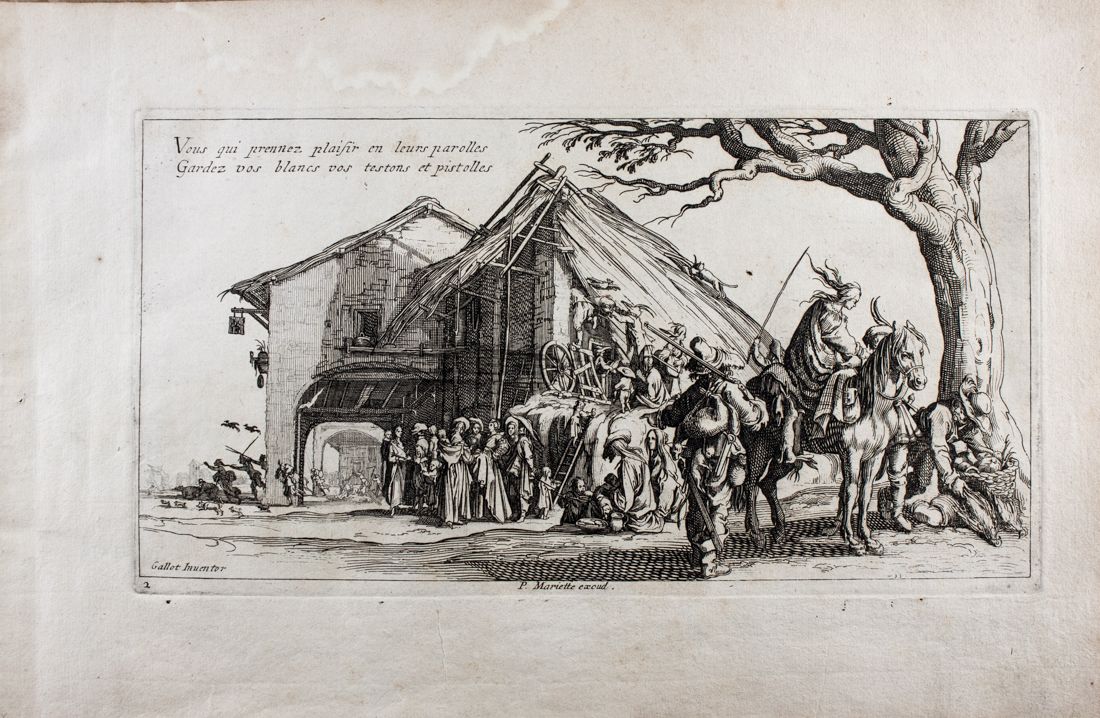 Vous qui prennez plaisir en leurs parolles
Gardez vos blancs vos testons et pistolles
Callot Inuentor
2
P. Mariette excud.